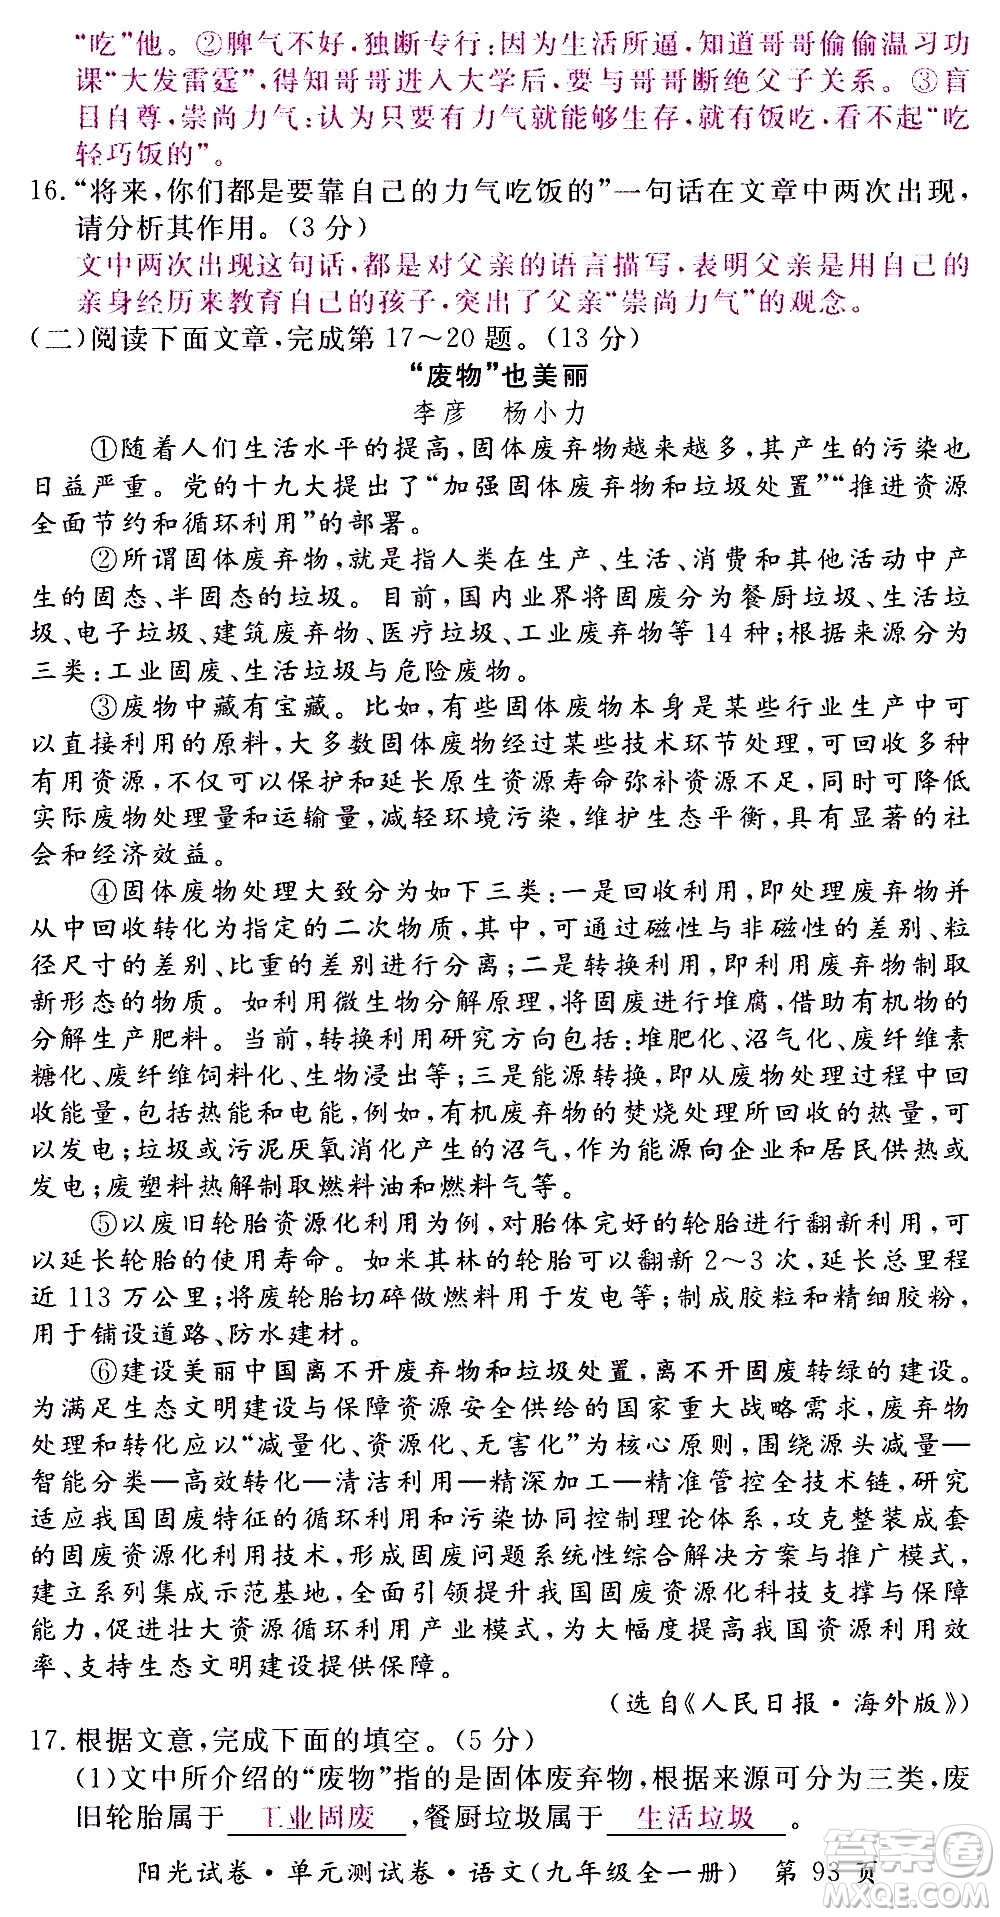 “吃”他。②脾气不好,独断专行:因为生活所逼,知道哥哥偷偷温习功
课“大发雷霆”,得知哥哥进入大学后,要与哥哥断绝父子关系。③盲
目自尊,崇尚力气:认为只要有力气就能够生存,就有饭吃,看不起“吃
轻巧饭的”。
16.“将来,你们都是要靠自己的力气吃饭的”一句话在文章中两次出现,
请分析其作用。(3分)
文中两次出现这句话,都是对父亲的语言描写,表明父亲是用自己的
亲身经历来教育自己的孩子,突出了父亲“崇尚力气”的观念。
(二)阅读下面文章,完成第17～20题。(13分)
“废物”也美丽
李彦 杨小力
①随着人们生活水平的提高,固体废弃物越来越多,其产生的污染也
日益严重。党的十九大提出了“加强固体废弃物和垃圾处置”“推进资源
全面节约和循环利用”的部署。
②所谓固体废弃物,就是指人类在生产、生活、消费和其他活动中产
生的固态、半固态的垃圾。目前,国内业界将固废分为餐厨垃圾、生活垃
圾、电子垃圾、建筑废弃物、医疗垃圾、工业废弃物等14种;根据来源分为
三类:工业固废、生活垃圾与危险废物。
③废物中藏有宝藏。比如,有些固体废物本身是某些行业生产中可
以直接利用的原料,大多数固体废物经过某些技术环节处理,可回收多种
有用资源,不仅可以保护和延长原生资源寿命弥补资源不足,同时可降低
实际废物处理量和运输量,减轻环境污染,维护生态平衡,具有显著的社
会和经济效益。
④固体废物处理大致分为如下三类:一是回收利用,即处理废弃物并
从中回收转化为指定的二次物质,可通过磁性与非磁性的差别、粒
径尺寸的差别、比重的差别进行分离;二是转换利用,即利用废弃物制取
新形态的物质。如利用微生物分解原理,将固废进行堆腐,借助有机物的
分解生产肥料。当前,转换利用研究方向包括:堆肥化、沼气化、废纤维素
糖化、废纤维饲料化、生物浸出等;三是能源转换,即从废物处理过程中回
收能量,包括热能和电能,例如,有机废弃物的焚烧处理所回收的热量,可
以发电;垃圾或污泥厌氧消化产生的沼气,作为能源向企业和居民供热或
发电;废塑料热解制取燃料油和燃料气等。
⑤以废旧轮胎资源化利用为例,对胎体完好的轮胎进行翻新利用,可
以延长轮胎的使用寿命。如米其林的轮胎可以翻新2～3次,延长总里程
近113万公里;将废轮胎切碎做燃料用于发电等;制成胶粒和精细胶粉,
用于铺设道路、防水建材。
⑥建设美丽中国离不开废弃物和垃圾处置,离不开固废转绿的建设。
为满足生态文明建设与保障资源安全供给的国家重大战略需求,废弃物
处理和转化应以“减量化、资源化、无害化”为核心原则,围绕源头减量—
智能分类—高效转化—清洁利用—精深加工—精准管控全技术链,研究
适应我国固废特征的循环利用和污染协同控制理论体系,攻克整装成套
的固废资源化利用技术,形成固废问题系统性综合解决方案与推广模式,
建立系列集成示范基地,全面引领提升我国固废资源化科技支撑与保障
能力,促进壮大资源循环利用产业模式,为大幅度提高我国资源利用效
率、支持生态文明建设提供保障。
(选自《人民日报·海外版》)
17.根据文意,完成下面的填空。(5分)
(1)文中所介绍的“废物”指的是固体废弃物,根据来源可分为三类,废
旧轮胎属于 工业固废 ,餐厨垃圾属于 生活垃圾 。
阳光试卷·单元测试卷·语文(九年级全一册) 第93页
答案圈
MXQE.COM